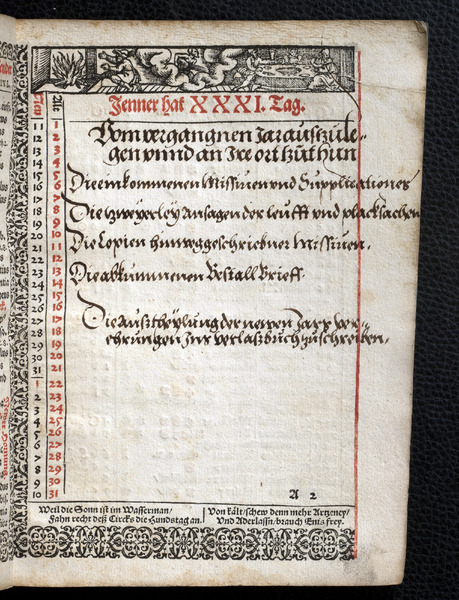 Jenner hat XXXI. Tag.
New Alte
11 1
12 2
13 3
14 4
15 5
16 6
17 7
18 8
19 9
20 10
21 11
22 12
23 13
24 14
25 15
26 16
27 17
28 18
29 19
30 20
31 21
1 22
2 23
3 24
4 25
5 26
6 27
7 28
8 29
9 30
10 31
Vom vergangnen Jar auszule-
gen vnnd an Ire ort zůthun
Die einkommenen Missiuen vnd Supplicationes
Die zweyerley Ansagen der leufft vnd placksachen
Die Copien hinweggeschribner Missiuen.
Die abkummenen Bestall Brieff.
Die ausztheylung der newen Jars ver-
ehrungen Inns verlaszbuch zuschreiben.
A 2
Weil die Sonn ist im Wasserman/
Fahn recht deß Circks die Hundstag an.
Von kält/schew denn mehr Artzeney/
Vnd Aderlassn/brauch Enis frey.